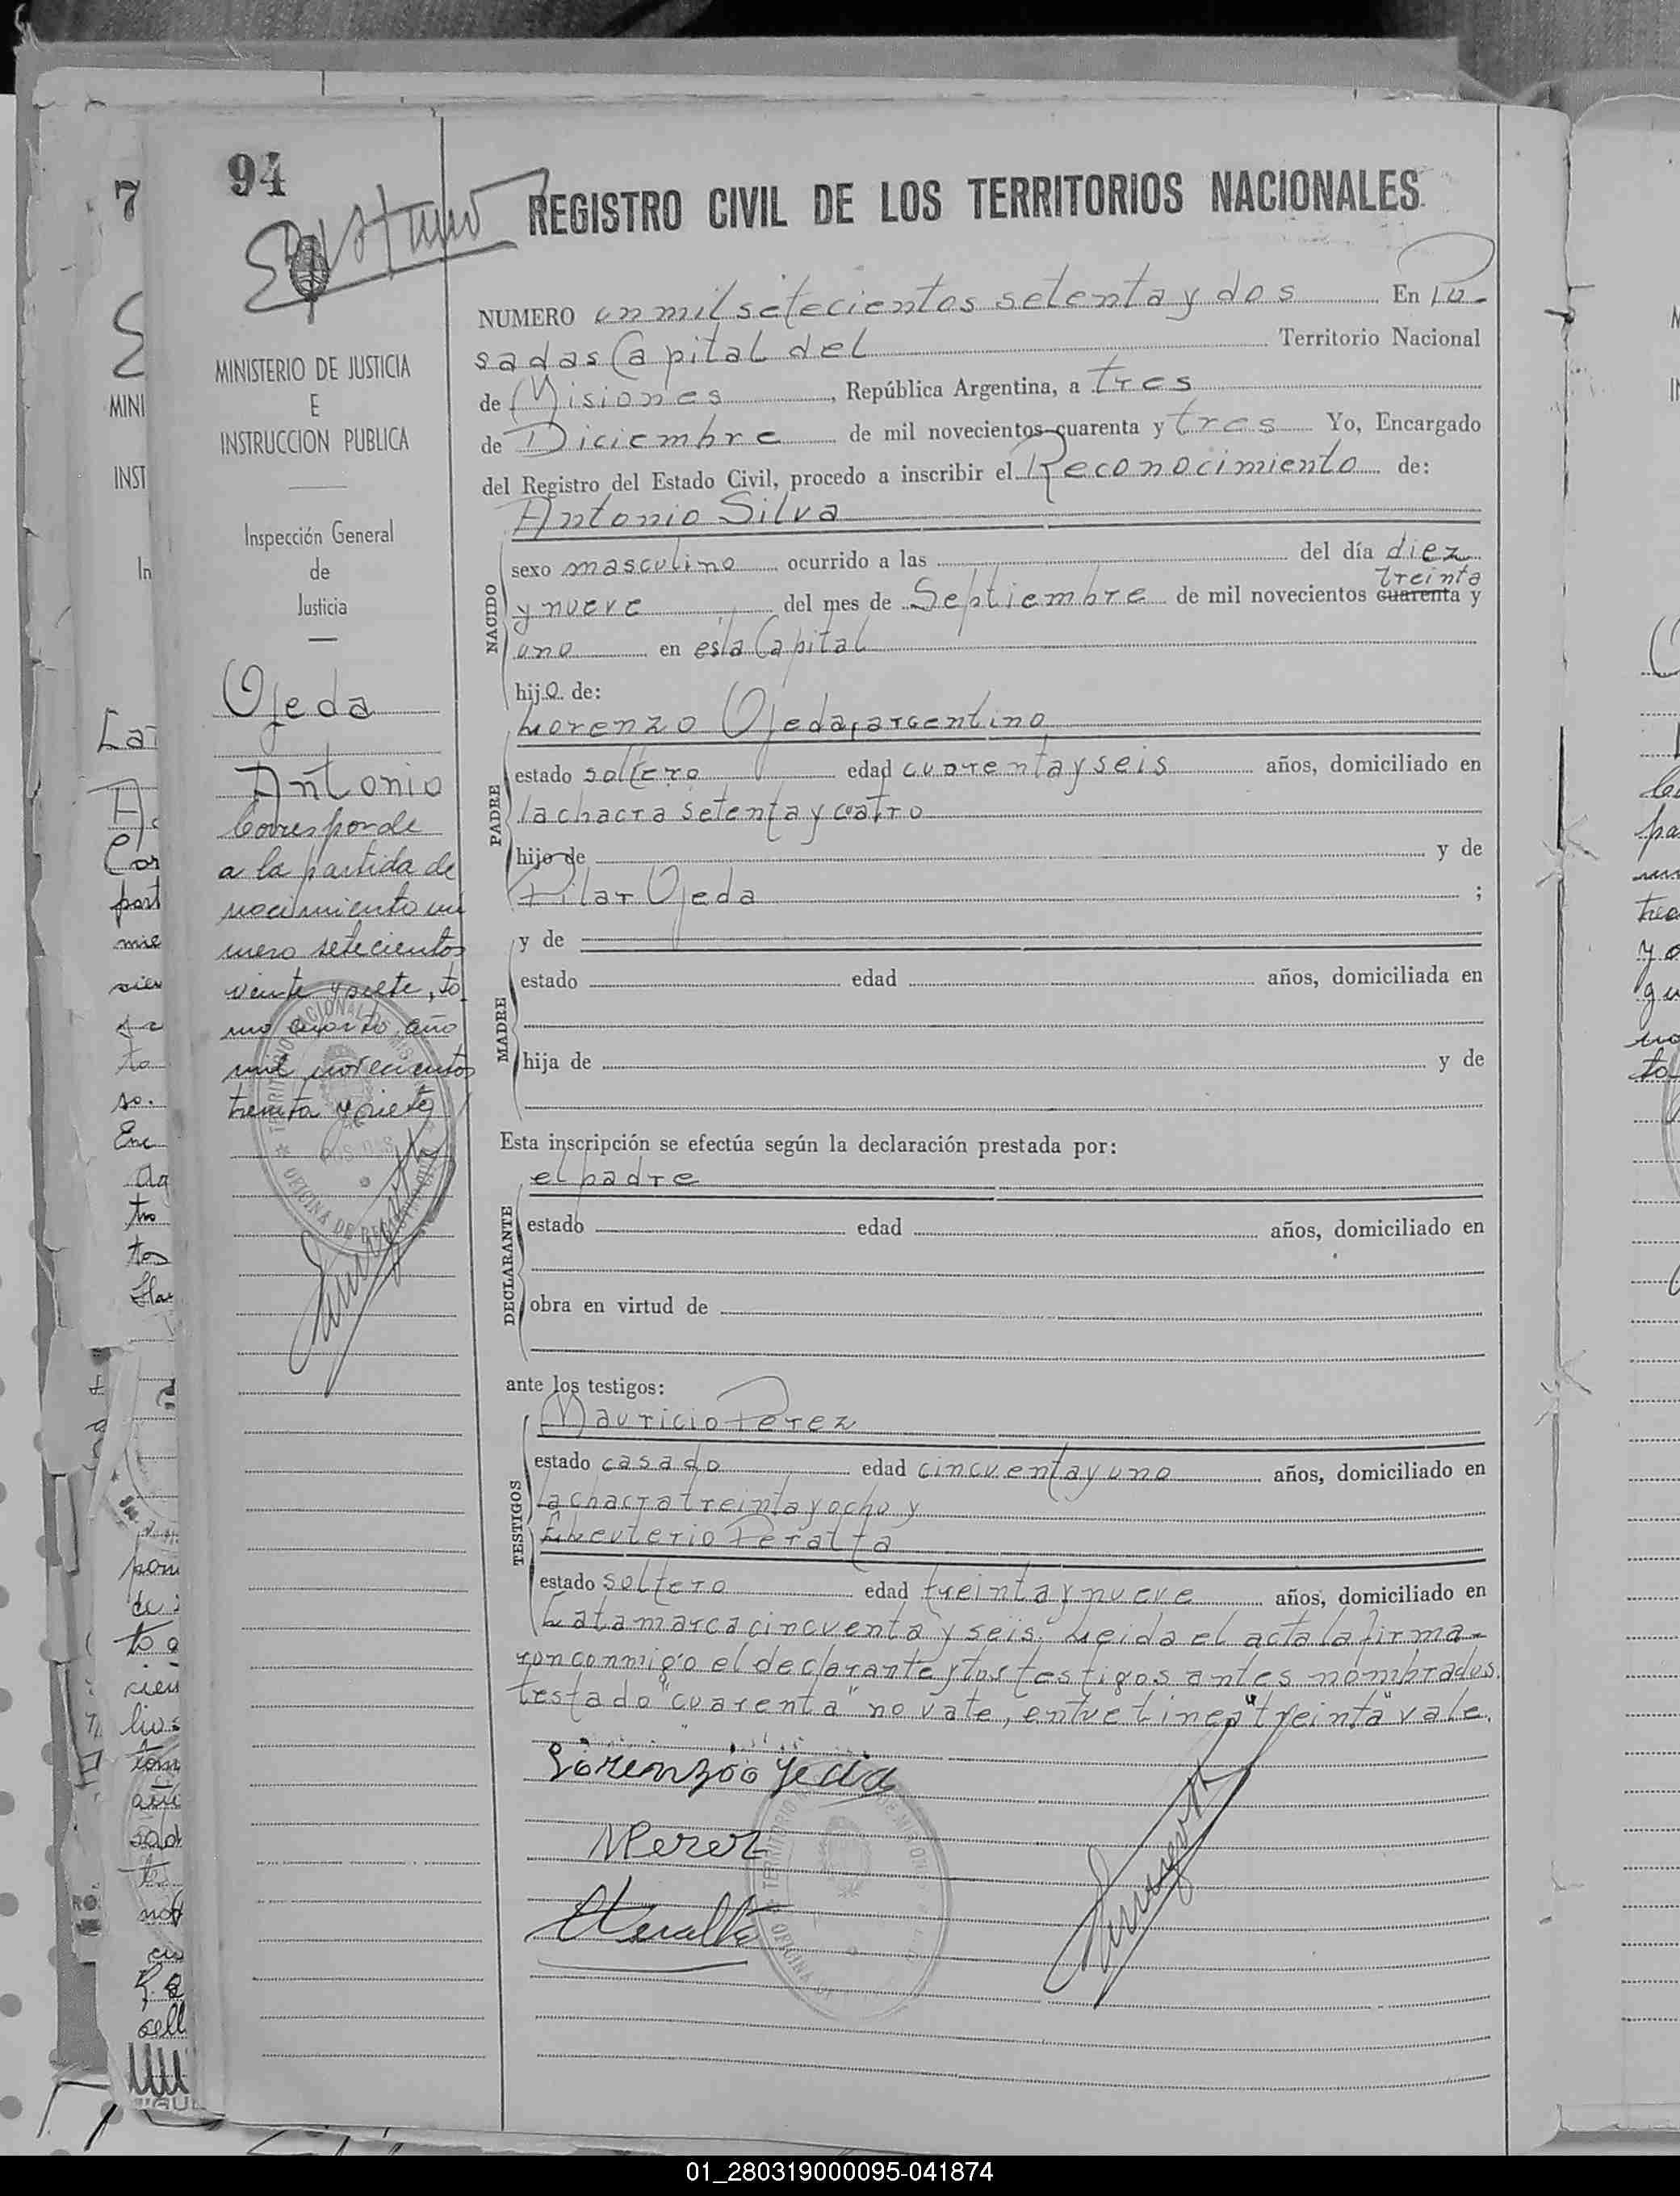 94
REGISTRO CIVIL DE LOS TERRITORIOS NACIONALES
MINISTERIO DE JUSTICIA
E
INSTRUCCION PUBLICA
Inspección General
de
Justicia
Ojeda
Antonio
Corresponde
a la partida de
nacimiento nú
mero setecientos
veinte y siete, to
mo cuarto, año
mil novecientos
treinta y siete
NUMERO un mil setecientos setenta y dos En Po-
sadas Capital del Territorio Nacional
de Misiones, República Argentina, a tres
de Diciembre de mil novecientos cuarenta y tres Yo, Encargado
del Registro del Estado Civil, procedo a inscribir el Reconocimiento de:
Antonio Silva
NACIDO
sexo masculino ocurrido a las del día diez
treinta
y nueve del mes de Septiembre de mil novecientos cuarenta y
uno en esta Capital
hijo de:
Lorenzo Ojeda, argentino
PADRE
estado soltero edad cuarenta y seis años, domiciliado en
la chacra setenta y cuatro
hijo de y de
Pilar Ojeda ;
y de
MADRE
estado edad años, domiciliada en
hija de y de
Esta inscripción se efectúa según la declaración prestada por:
el padre
DECLARANTE
estado edad años, domiciliado en
obra en virtud de
ante los testigos:
Mauricio Perez
TESTIGOS
estado casado edad cincuenta y uno años, domiciliado en
la chacra treinta y ocho y
Eleuterio Peralta
estado soltero edad treinta y nueve años, domiciliado en
Catamarca cincuenta y seis. Leida el acta la firma-
ron conmigo el declarante y los testigos antes nombrados.
testado "cuarenta" no vale, entre linea "treinta" vale.
Lorenzo ojeda
MPerez
EPeralta
01_280319000095-041874